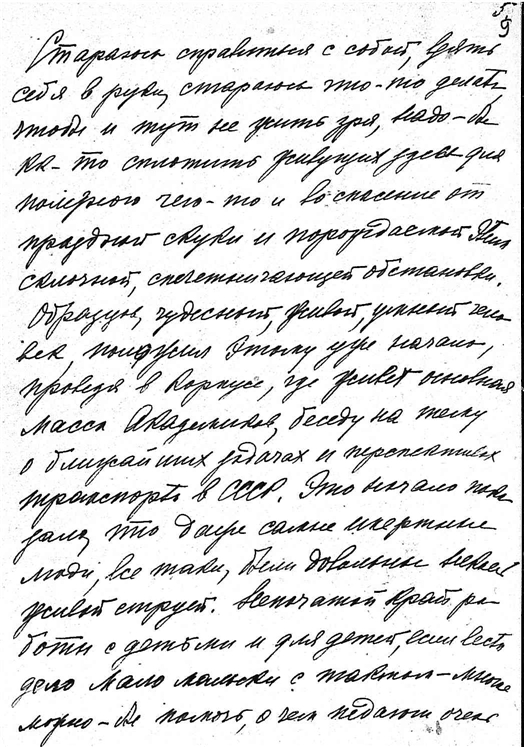 5
9
Стараюсь справиться с собой, взять
себя в руки, стараюсь что-то делать,
чтобы и тут не жить зря, надо-бы
как-то сплотить живущих здесь для
полезного чего-то и во спасение от
праздной скуки и порождаемой этим
склочной, сплетничающей обстановки.
Образцов, чудесный, живой, умный чело
век, положил этому уже начало,
проведя в Корпусе, где живет основная
масса Академиков, беседу на тему
о ближайших задачах и перспективах
транспорта в СССР. Это начало пока
зало, что даже самые инертные
люди, все таки, были довольны
живой струей. Непочатой край ра
боты с детьми и для детей, если вести
дело мало мальски с тактом - многое
можно-бы помочь, о чем педагоги очень